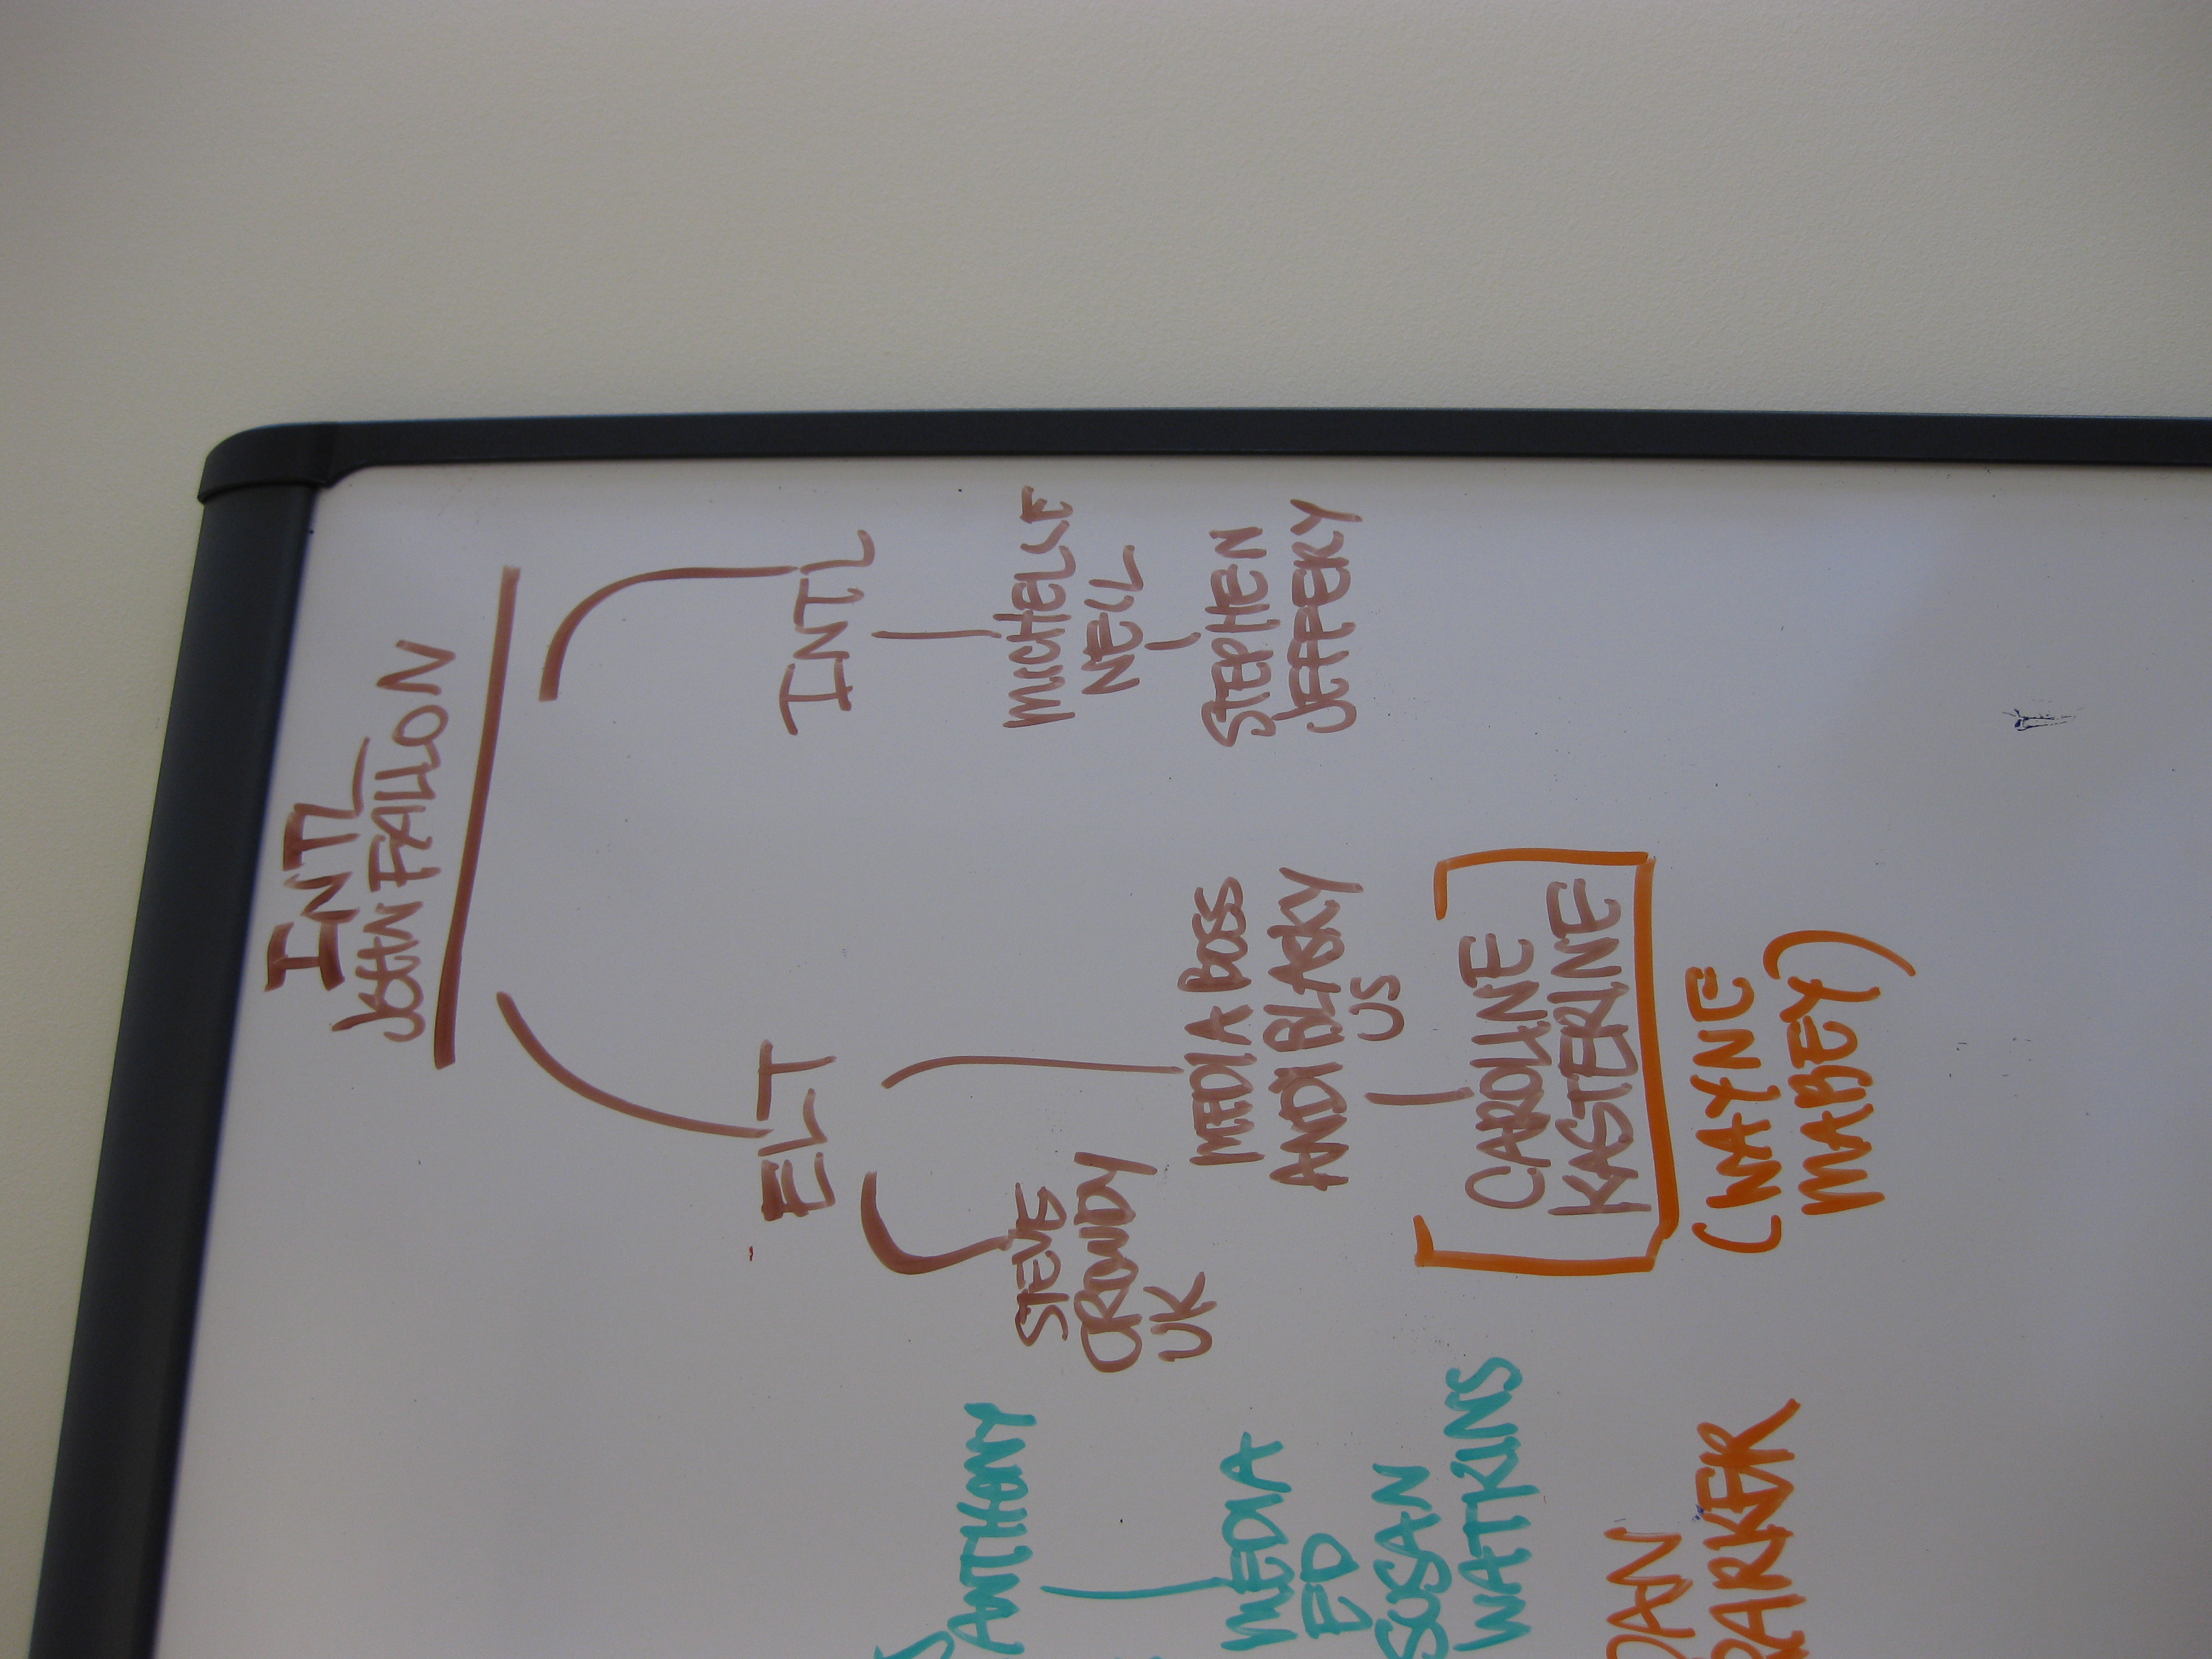 INTL
JOHN FALLON
ELT
INTL
STEVE
CROWDY
UK
MEDIA BOSS
ANDI BLASKY
US
CAROLINE
KASTERLINE
(WAYNE
MABEY)
MICHELLE
NEIL
STEPHEN
JEFFERY
ANTHONY
MEDIA
ED
SUSAN
WATKINS
PARKER